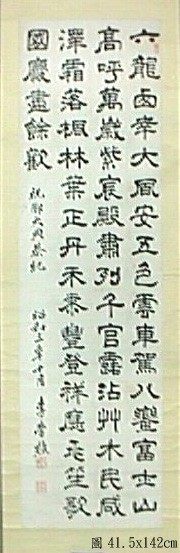 六龍西幸大風安五色雲車駕八鸞富士山
高呼萬歲紫宸殿肅列千官露沾艸木民咸
澤霜落楓林葉正丹禾黍豐登祥應兆笙歌
國慶盡餘歡
祝御大典恭紀
昭和三年
圖 41.5x142cm